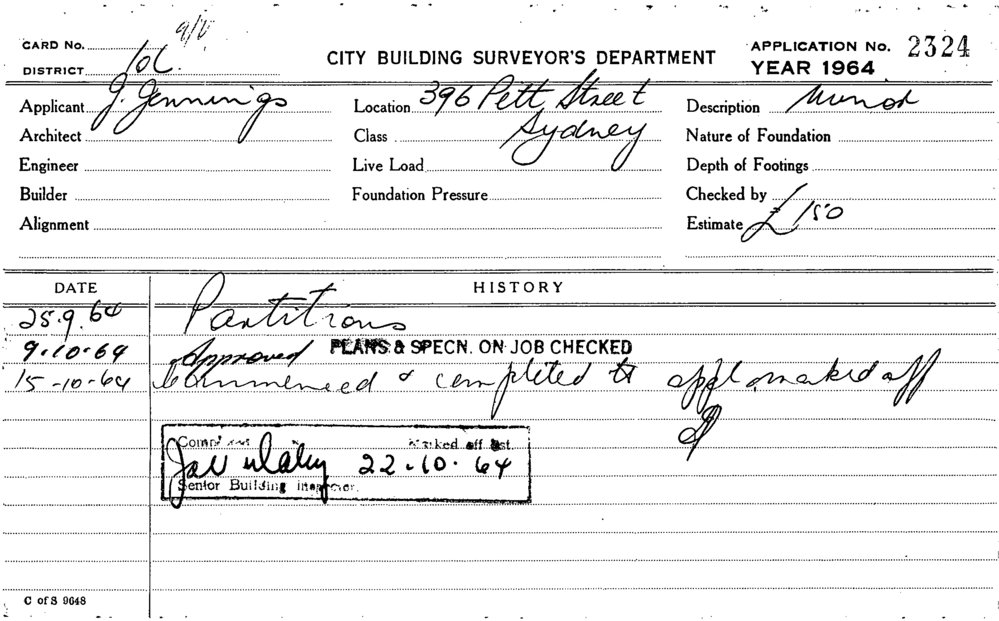 CARD No.
DISTRICT
CITY BUILDING SURVEYOR'S DEPARTMENT
APPLICATION No. 2324
YEAR 1964
Applicant J. Jennings
Location 396 Pitt Street
Sydney
Description Minor
Architect
Class
Nature of Foundation
Engineer
Live Load
Depth of Footings
Builder
Foundation Pressure
Checked by
Alignment
Estimate £150
DATE
HISTORY
25.9.64 Partitions
9.10.64 Approved PLANS & SPECN. ON JOB CHECKED
15-10-64 Commenced & completed appl marked off
Marked off list.
22.10.64
Senior Building Inspector.
C of S 9648